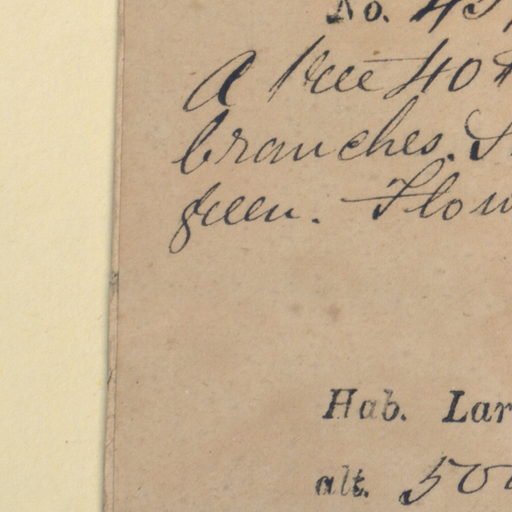 No. 45
A tree 40
branches.
green. Flow
Hab. Lar
alt. 500